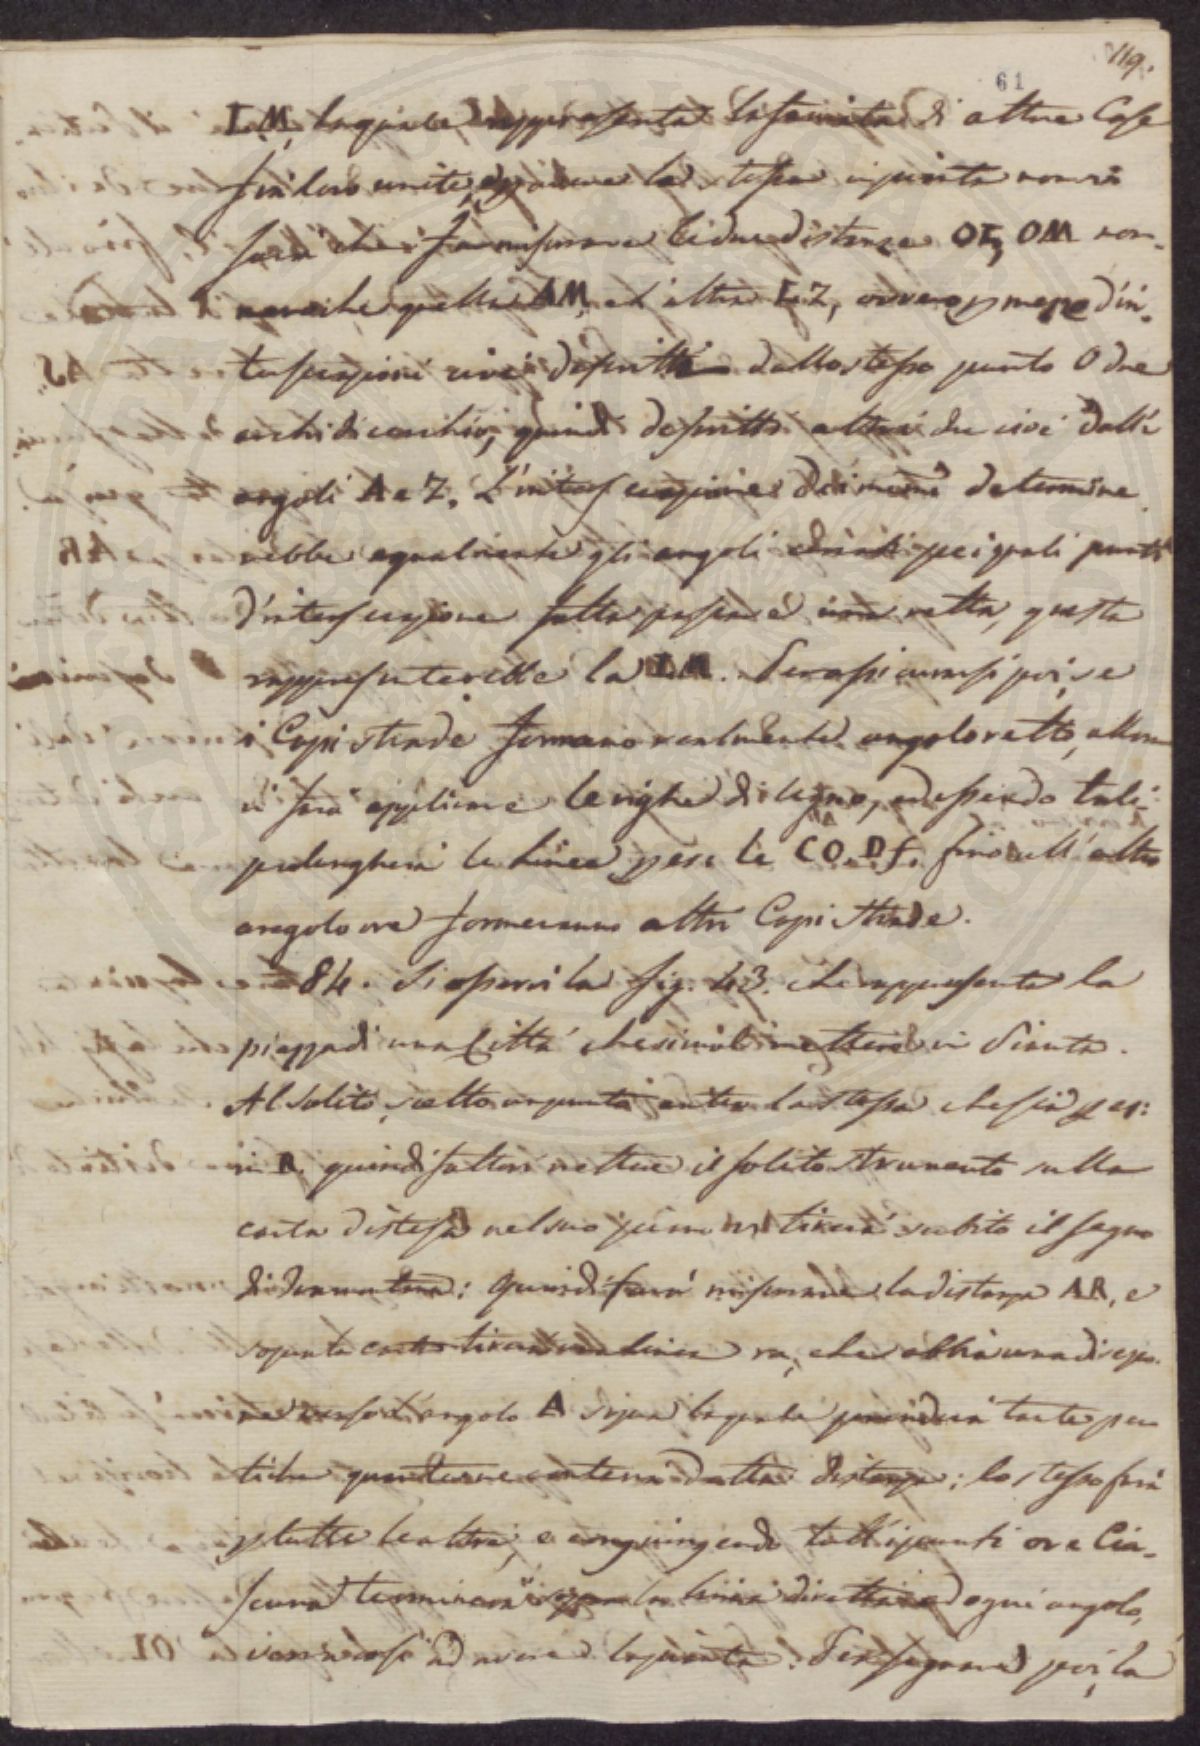 119.
61
I.M. la quale rappresenta la facciata di altre Case
fra loro unite, e per avere la stessa in pianta non si
farà che far misurare le due distanze OI, OM non.
nanche quella AM, ed altra I.Z, ovvero per mezzo d'in.
tersezioni cioè descritti dallo stesso punto O due
archi di cerchio, quindi descritti altri due cioè dall'i
angoli A e Z. L'intersezione dei medmi determine
rebbe egualmente gli angoli pei quali punti
d'intersezione fatta passare una retta, questa
rappresenterebbe la I.M. Per assicurarsi poi, se
i Capi strade formano realmente angolo retto, allora
vi farà applicare le righe di legno, ed essendo tali
prolungherà le linee per le CO. DF. fino all'altro
angolo ove formeranno altri Capi strade.
84. Si osservi la fig. 43. che rappresenta la
piazza di una Città che si vuol mettere in Pianta.
Al solito, scelto un punto entro la stessa che sia per:
in R. quindi fattosi mettere il solito strumento sulla
carta distesa nel suo piano vi tirerà subito il segno
di Tramontana: quindi farà misurare la distanza AR, e
sopra la carta tirerà una linea ra, che abbia una direzio.
ne verso l'angolo A sopra la quale prenderà tante per
tiche quante ne conterrà detta distanza; lo stesso farà
per tutte le altre, e congiungendo tutti i punti ove Cia.
scuna terminerà sopra la linea diretta ad ogni angolo,
verrassi ad avere la pianta. Per segnare poi, la